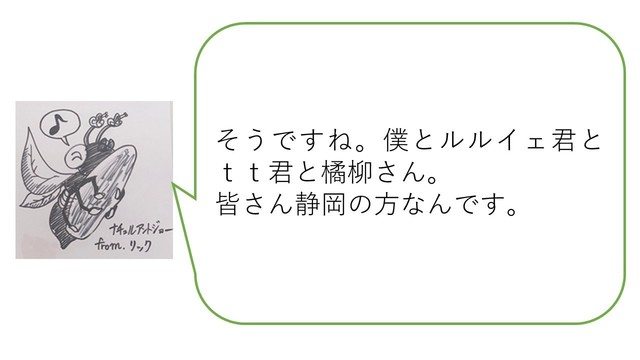 そうですね。僕とルルイェ君と
ｔｔ君と橘柳さん。
皆さん静岡の方なんです。
ナチュルアントジョー
from.リック